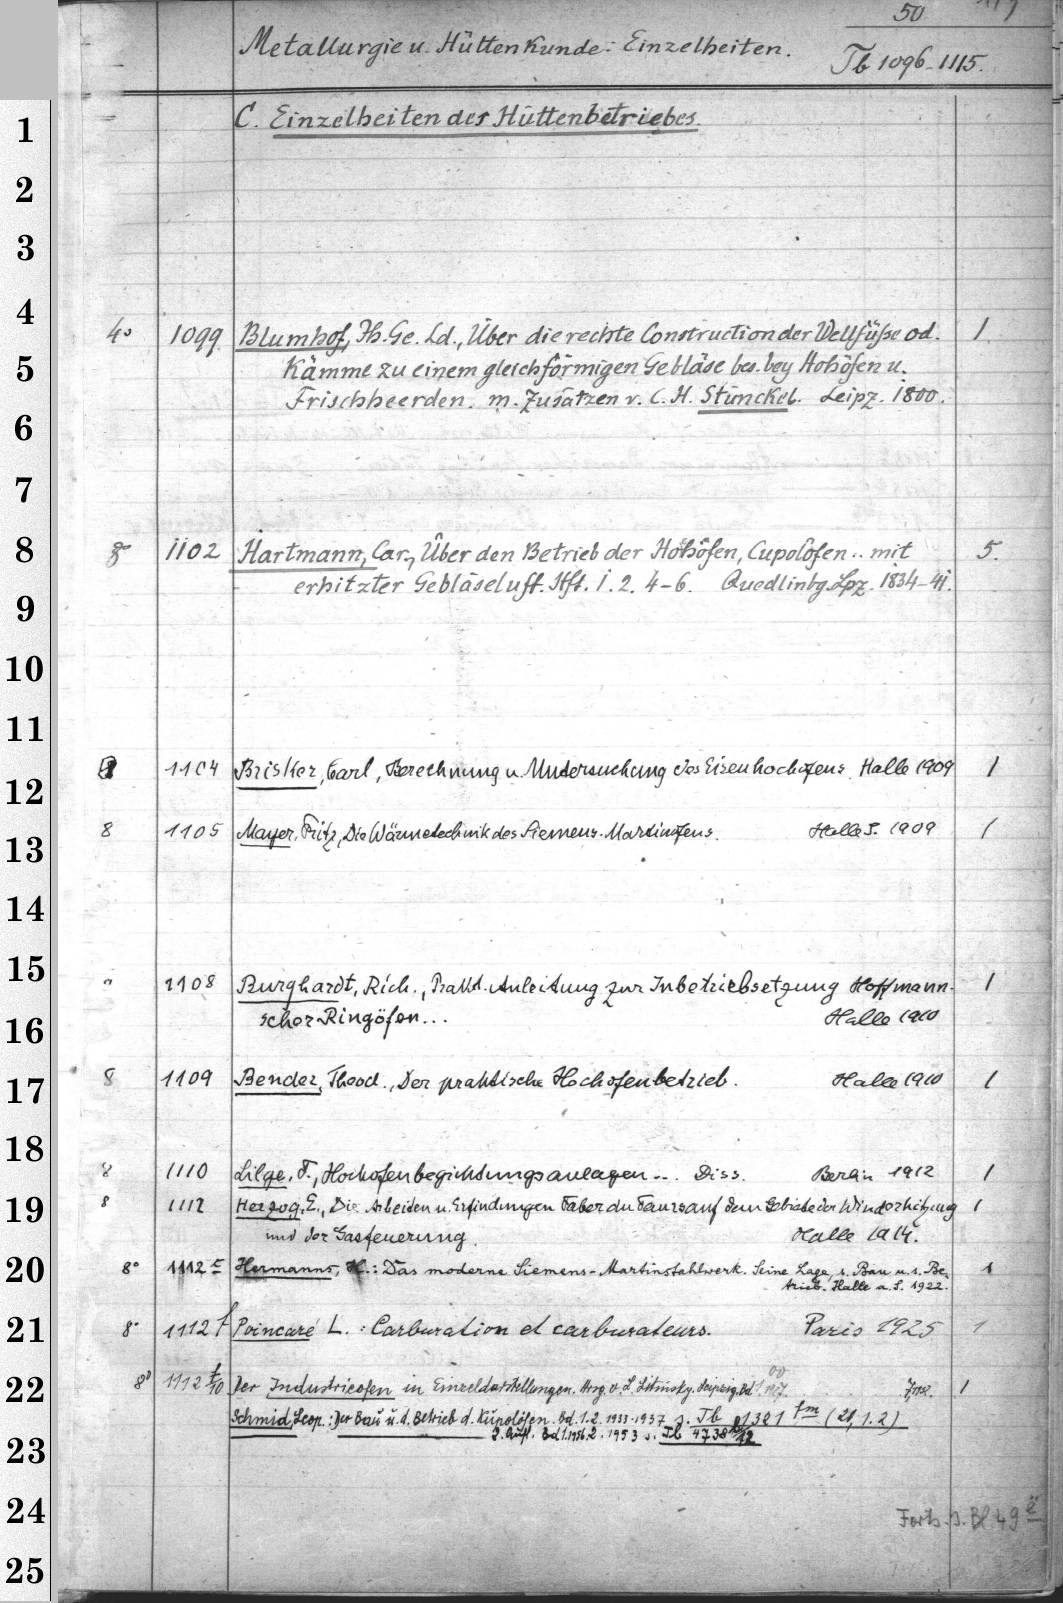 50
Metallurgie u. Hüttenkunde: Einzelheiten.
Tb 1096-1115.
1
C. Einzelheiten des Hüttenbetriebes.
2
3
4
4° 1099 Blumhof, Th. Ge. Ld., Über die rechte Construction der Wellfüße od. 1
5
Kämme zu einem gleichförmigen Gebläse bes. bey Hohöfen u.
Frischheerden. m. Zusätzen v. C. H. Stünckel. Leipz. 1800.
6
7
8
8° 1102 Hartmann, Car., Über den Betrieb der Hohöfen, Cupolöfen .. mit 5.
erhitzter Gebläseluft. Hft. 1. 2. 4-6. Quedlinbg. Lpz. 1834-41.
9
10
11
1104 Brisker, Carl, Berechnung u. Untersuchung des Eisenhochofens. Halle 1909 1
12
8 1105 Mayer, Fritz, Die Wärmetechnik des Siemens-Martinofens. Halle S. 1909 1
13
14
15
" 1108 Burghardt, Rich., Prakt. Anleitung zur Inbetriebsetzung Hoffmann- 1
scher Ringöfen... Halle 1910
16
8 1109 Bender, Theod., Der praktische Hochofenbetrieb. Halle 1910 1
17
18
8 1110 Lilge, F., Hochofenbegichtungsanlagen... Diss. Berlin 1912 1
19
8 1112 Herzog, E., Die Arbeiten u. Erfindungen Faber du Faurs auf dem Gebiete der Winderhitzung 1
und der Gasfeuerung. Halle 1914.
20
8° 1112 c Hermanns, H.: Das moderne Siemens-Martinstahlwerk. Seine Lage, s. Bau u. s. Be- 1
trieb. Halle a. S. 1922.
21
8° 1112 f Poincaré L. : Carburation et carburateurs. Paris 1925 1
22
8° 1112 f/10 Der Industrieofen in Einzeldarstellungen. Hrsg. v. L. Litinsky. Leipzig. Bd 1
Schmid, Leop.: Der Bau u. d. Betrieb d. Kupolöfen. Bd. 1. 2. 1933-1937 s. Tb 1381 fm (28, 1. 2)
23
2. Aufl. Bd 1. 1956. 2. 1953 s. Tb 4738
24
Forts. s. Bl 49
25